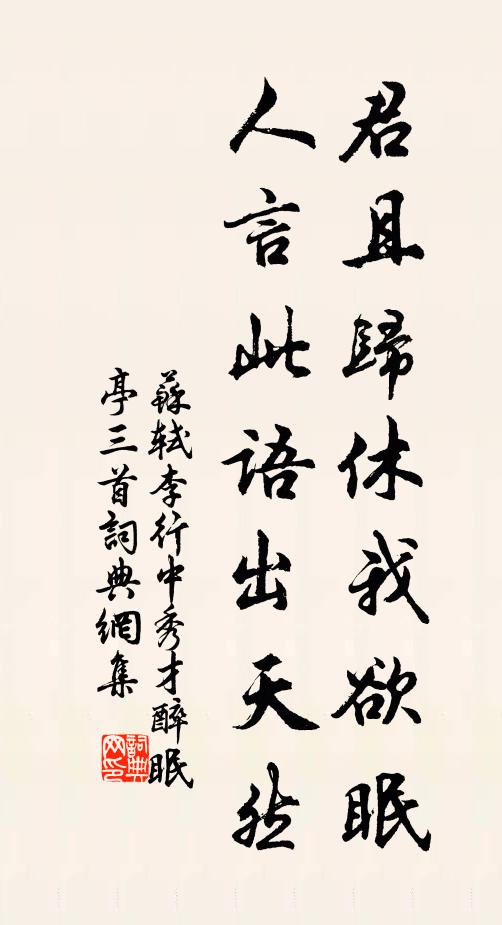 君且歸休我欲眠
人言此語出天然
蘇軾李行中秀才醉眠
亭三首詞典網集
詞典網印